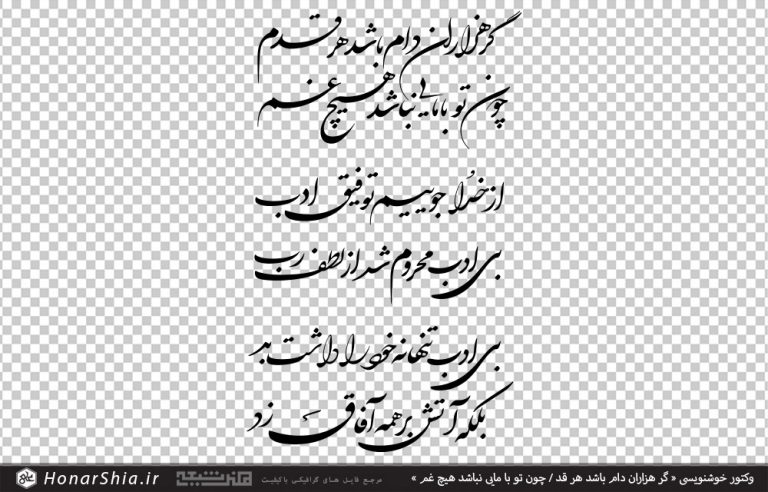 گر هزاران دام باشد هر قدم
چون تو با مایی نباشد هیچ غم
از خدا جوییم توفیق ادب
بی ادب محروم شد از لطف رب
بی ادب تنها نه خود را داشت بد
بلکه آتش بر همه آفاق زد
وکتور خوشنویسی « گر هزاران دام باشد هر قد / چون تو با مایی نباشد هیچ غم »
مرجع فایل های گرافیکی باکیفیت
هنر شیعه
HonarShia.ir